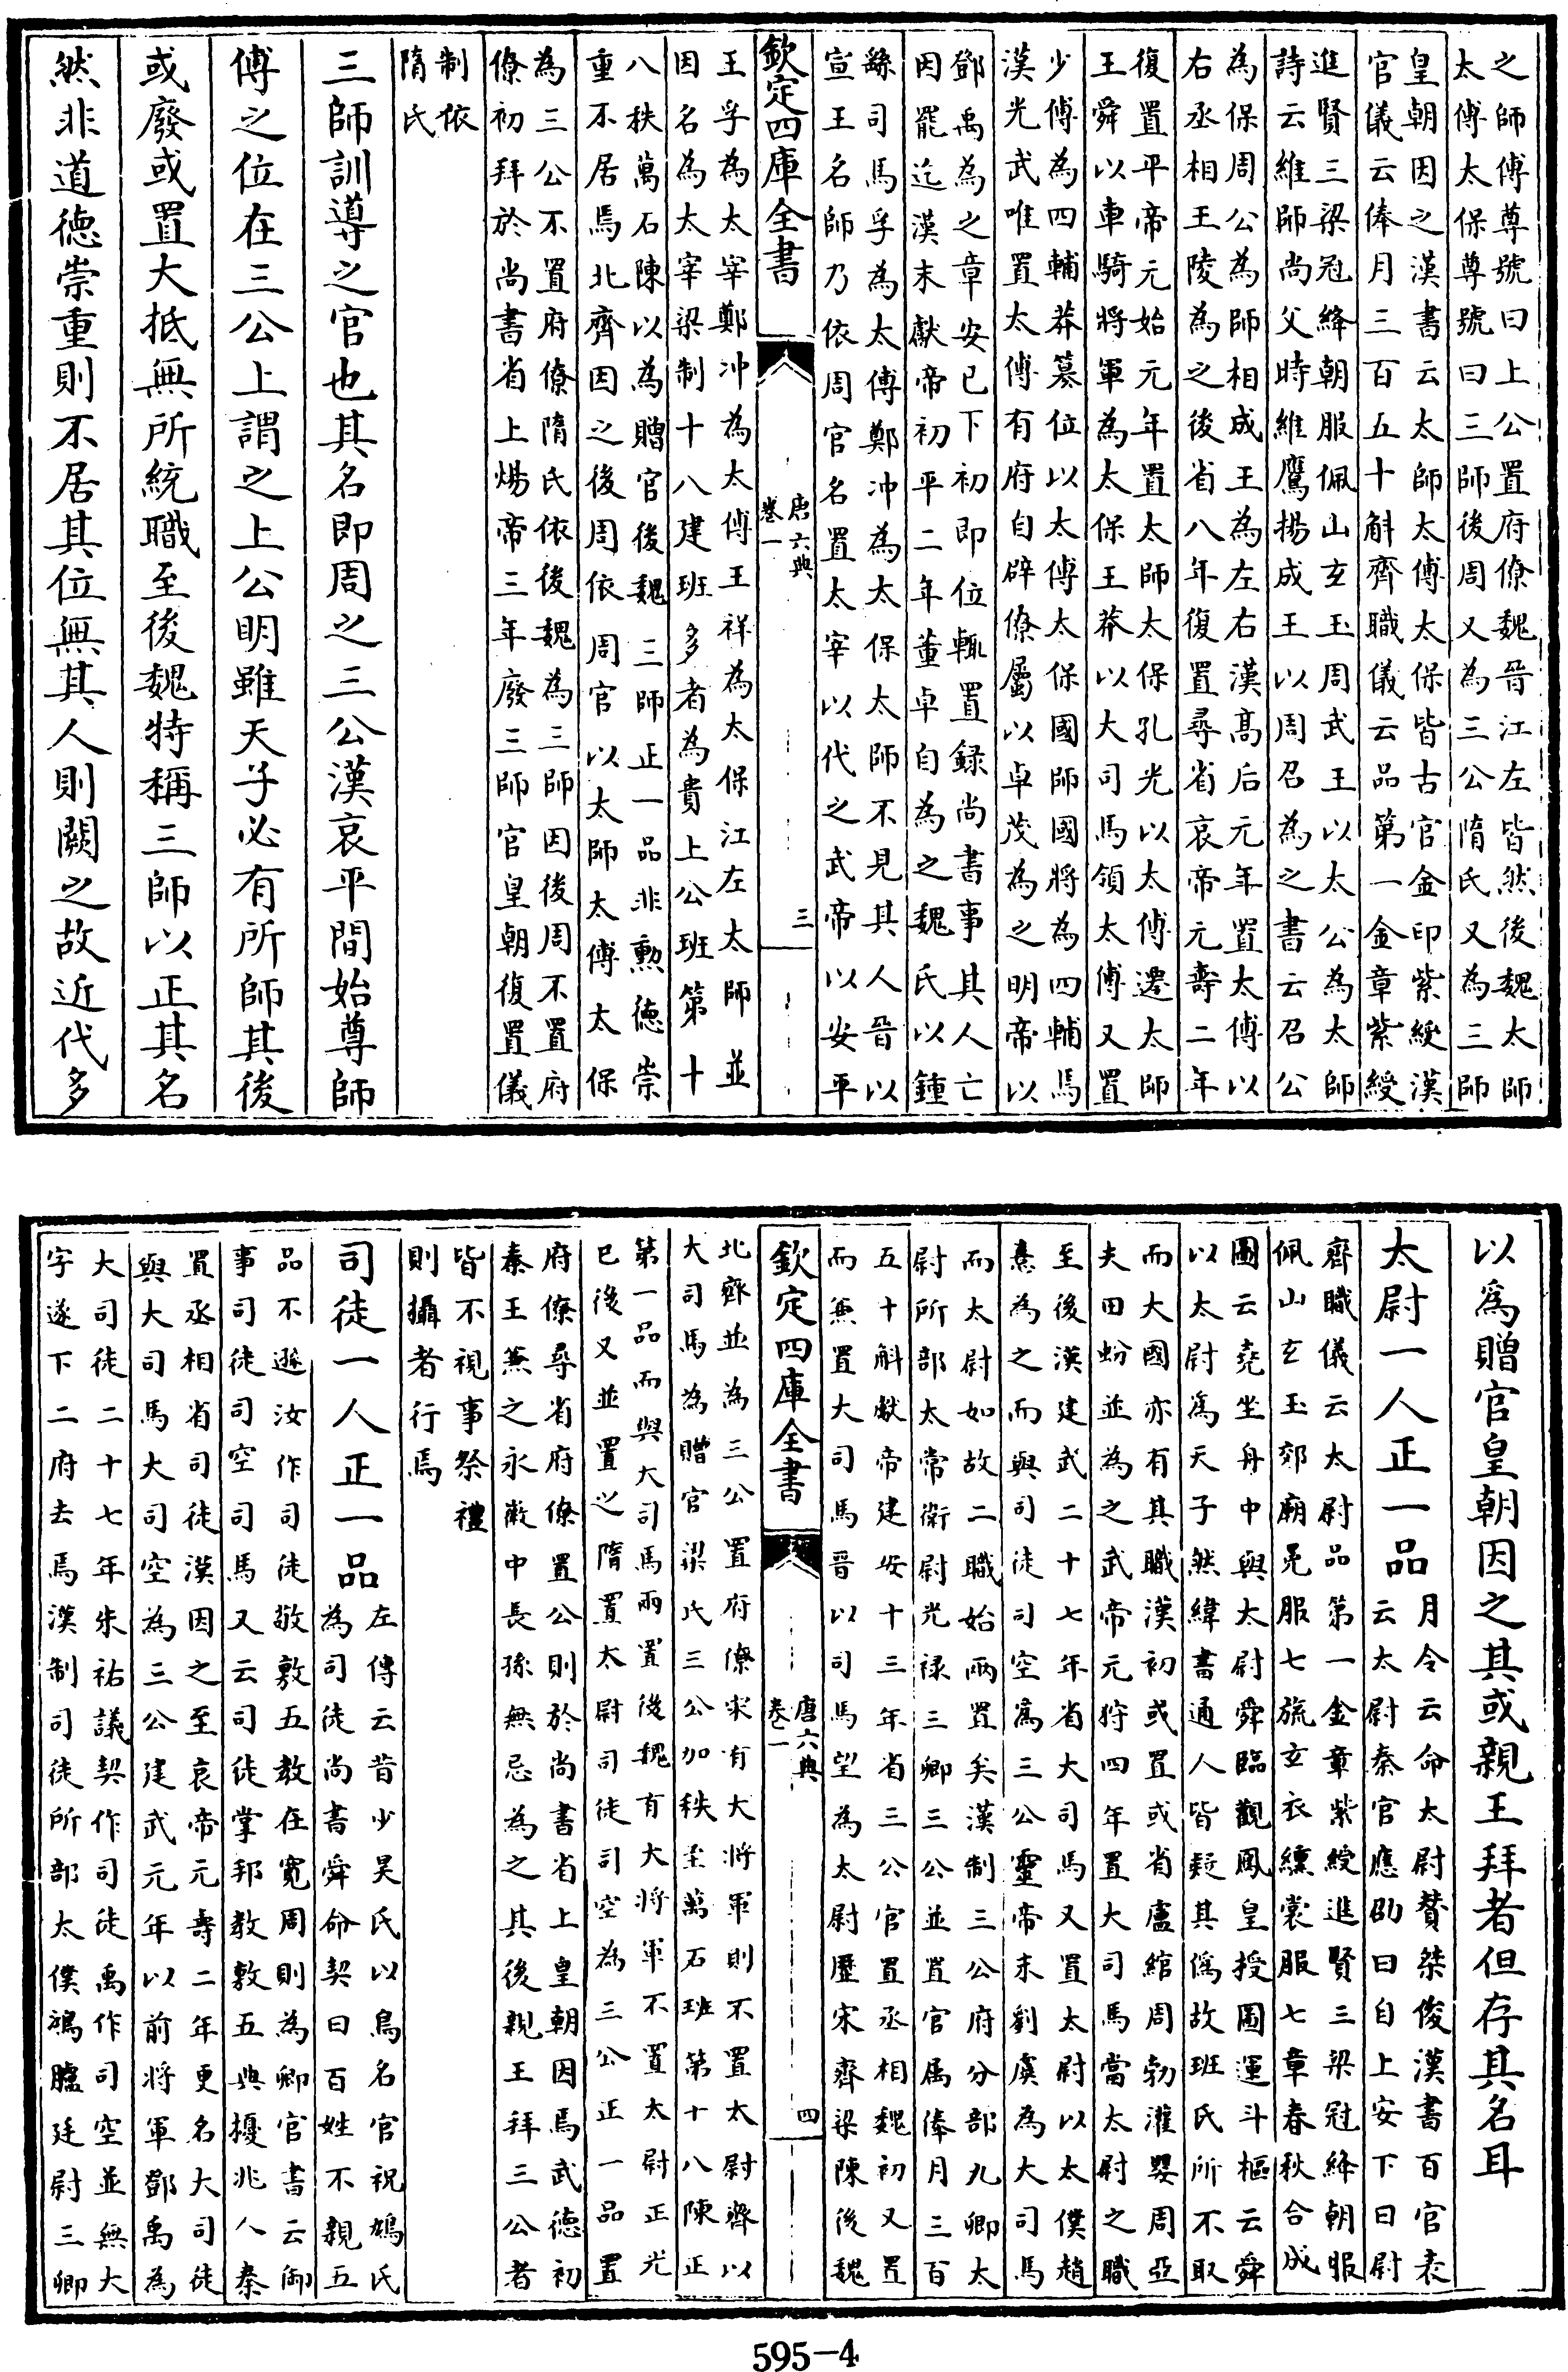 之師傅尊號曰上公置府僚魏晉江左皆然後魏太師
太傅太保尊號曰三師後周又為三公隋氏又為三師
皇朝因之漢書云太師太傅太保皆古官金印紫綬漢
官儀云俸月三百五十斛齊職儀云品第一金章紫綬
進賢三梁冠絳朝服佩山玄玉周武王以太公為太師
詩云維師尚父時維鷹揚成王以周召為之書云召公
為保周公為師相成王為左右漢高后元年置太傅以
右丞相王陵為之後省八年復置尋省哀帝元壽二年
復置平帝元始元年置太師太保孔光以太傅遷太師
王舜以車騎將軍為太保王莽以大司馬領太傅又置
少傅為四輔莽篡位以太傅太保國師國將為四輔馬
漢光武唯置太傅有府自辟僚屬以卓茂為之明帝以
鄧禹為之章安已下初即位輒置録尚書事其人亡
因罷迄漢末獻帝初平二年董卓自為之魏氏以鍾
繇司馬孚為太傅鄭冲為太保太師不見其人晉以
宣王名師乃依周官名置太宰以代之武帝以安平
欽定四庫全書
唐六典
卷一
三
王孚為太宰鄭冲為太傅王祥為太保江左太師並
因名為太宰梁制十八建班多者為貴上公班第十
八秩萬石陳以為贈官後魏三師正一品非勲德崇
重不居焉北齊因之後周依周官以太師太傅太保
為三公不置府僚隋氏依後魏為三師因後周不置府
僚初拜於尚書省上煬帝三年廢三師官皇朝復置儀
制依
隋氏
三師訓導之官也其名即周之三公漢哀平間始尊師
傅之位在三公上謂之上公明雖天子必有所師其後
或廢或置大抵無所統職至後魏特稱三師以正其名
然非道德崇重則不居其位無其人則闕之故近代多
以為贈官皇朝因之其或親王拜者但存其名耳
太尉一人正一品
月令云命太尉贊桀俊漢書百官表
云太尉秦官應劭曰自上安下曰尉
齊職儀云太尉品第一金章紫綬進賢三梁冠絳朝服
佩山玄玉郊廟冕服七旒玄衣纁裳服七章春秋合成
圖云堯坐舟中與太尉舜臨觀鳳皇授圖運斗樞云舜
以太尉為天子然緯書通人皆疑其僞故班氏所不取
而大國亦有其職漢初或置或省盧綰周勃灌嬰周亞
夫田蚡並為之武帝元狩四年置大司馬當太尉之職
至後漢建武二十七年省大司馬又置太尉以太僕趙
憙為之而與司徒司空為三公靈帝末劉虞為大司馬
而太尉如故二職始兩置矣漢制三公府分部九卿太
尉所部太常衛尉光禄三卿三公並置官属俸月三百
五十斛獻帝建安十三年省三公官置丞相魏初又置
而兼置大司馬晉以司馬望為太尉歷宋齊梁陳後魏
欽定四庫全書
唐六典
卷一
四
北齊並為三公置府僚宋有大將軍則不置太尉齊以
大司馬為贈官梁氏三公加秩至萬石班第十八陳正
第一品而與大司馬兩置後魏有大將軍不置太尉正光
已後又並置之隋置太尉司徒司空為三公正一品置
府僚尋省府僚置公則於尚書省上皇朝因焉武德初
秦王兼之永徽中長孫無忌為之其後親王拜三公者
皆不視事祭禮
則攝者行焉
司徒一人正一品
左傳云昔少昊氏以鳥名官祝鳩氏
為司徒尚書舜命契曰百姓不親五
品不遜汝作司徒敬敷五教在寛周則為卿官書云御
事司徒司空司馬又云司徒掌邦教敷五典擾兆人秦
置丞相省司徒漢因之至哀帝元壽二年更名大司徒
與大司馬大司空為三公建武元年以前將軍鄧禹為
大司徒二十七年朱祐議契作司徒禹作司空並無大
字遂下二府去焉漢制司徒所部太僕鴻臚廷尉三卿
595-4